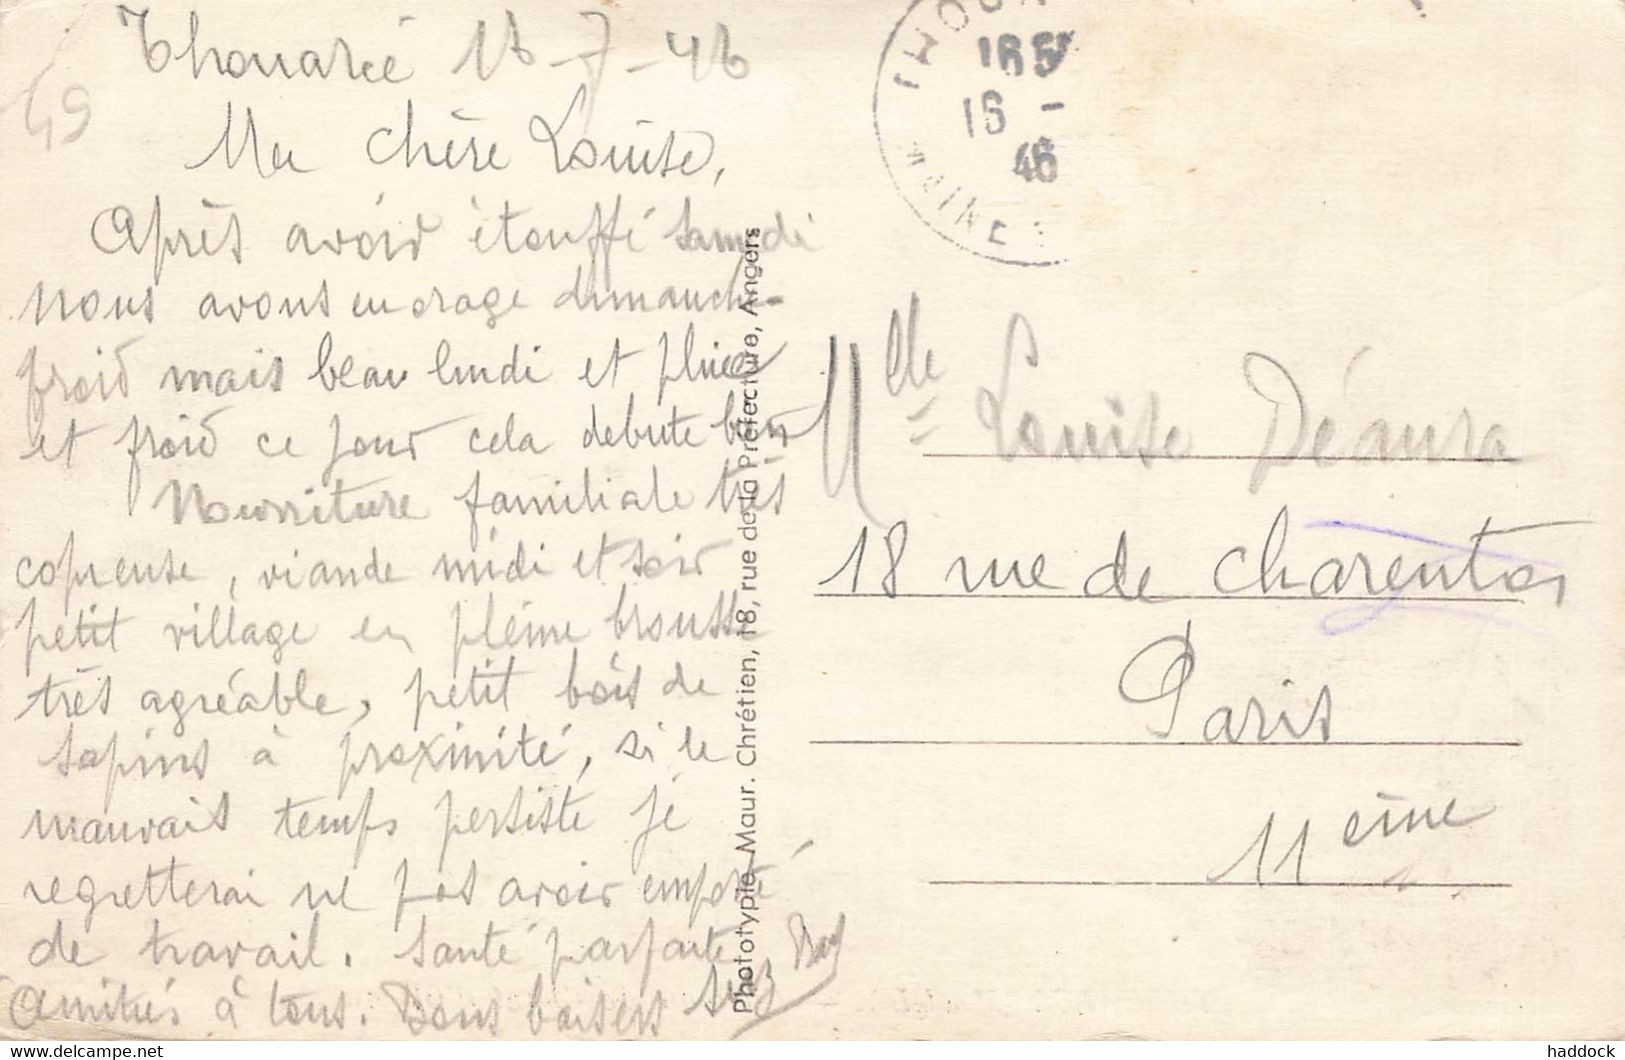 Thouarcé 16-7-46
49
Ma chère Louise,
Après avoir étouffé samedi
nous avons eu orage dimanche
froid mais beau lundi et pluie
et froid ce jour cela debute bien
Nourriture familiale très
copieuse, viande midi et soir
petit village en pleine brousse
très agréable, petit bois de
sapins à proximité, si le
mauvais temps persiste je
regretterai ne pas avoir emporté
de travail. Santé parfaite
Amitiés à tous. Bons baisers Suz
Phototypie Maur. Chrétien, 18, rue de la Préfecture, Angers
16 5
16 -
46
MAINE
Mlle Louise
18 rue de Charenton
Paris
11 ème
delcampe.net
haddock